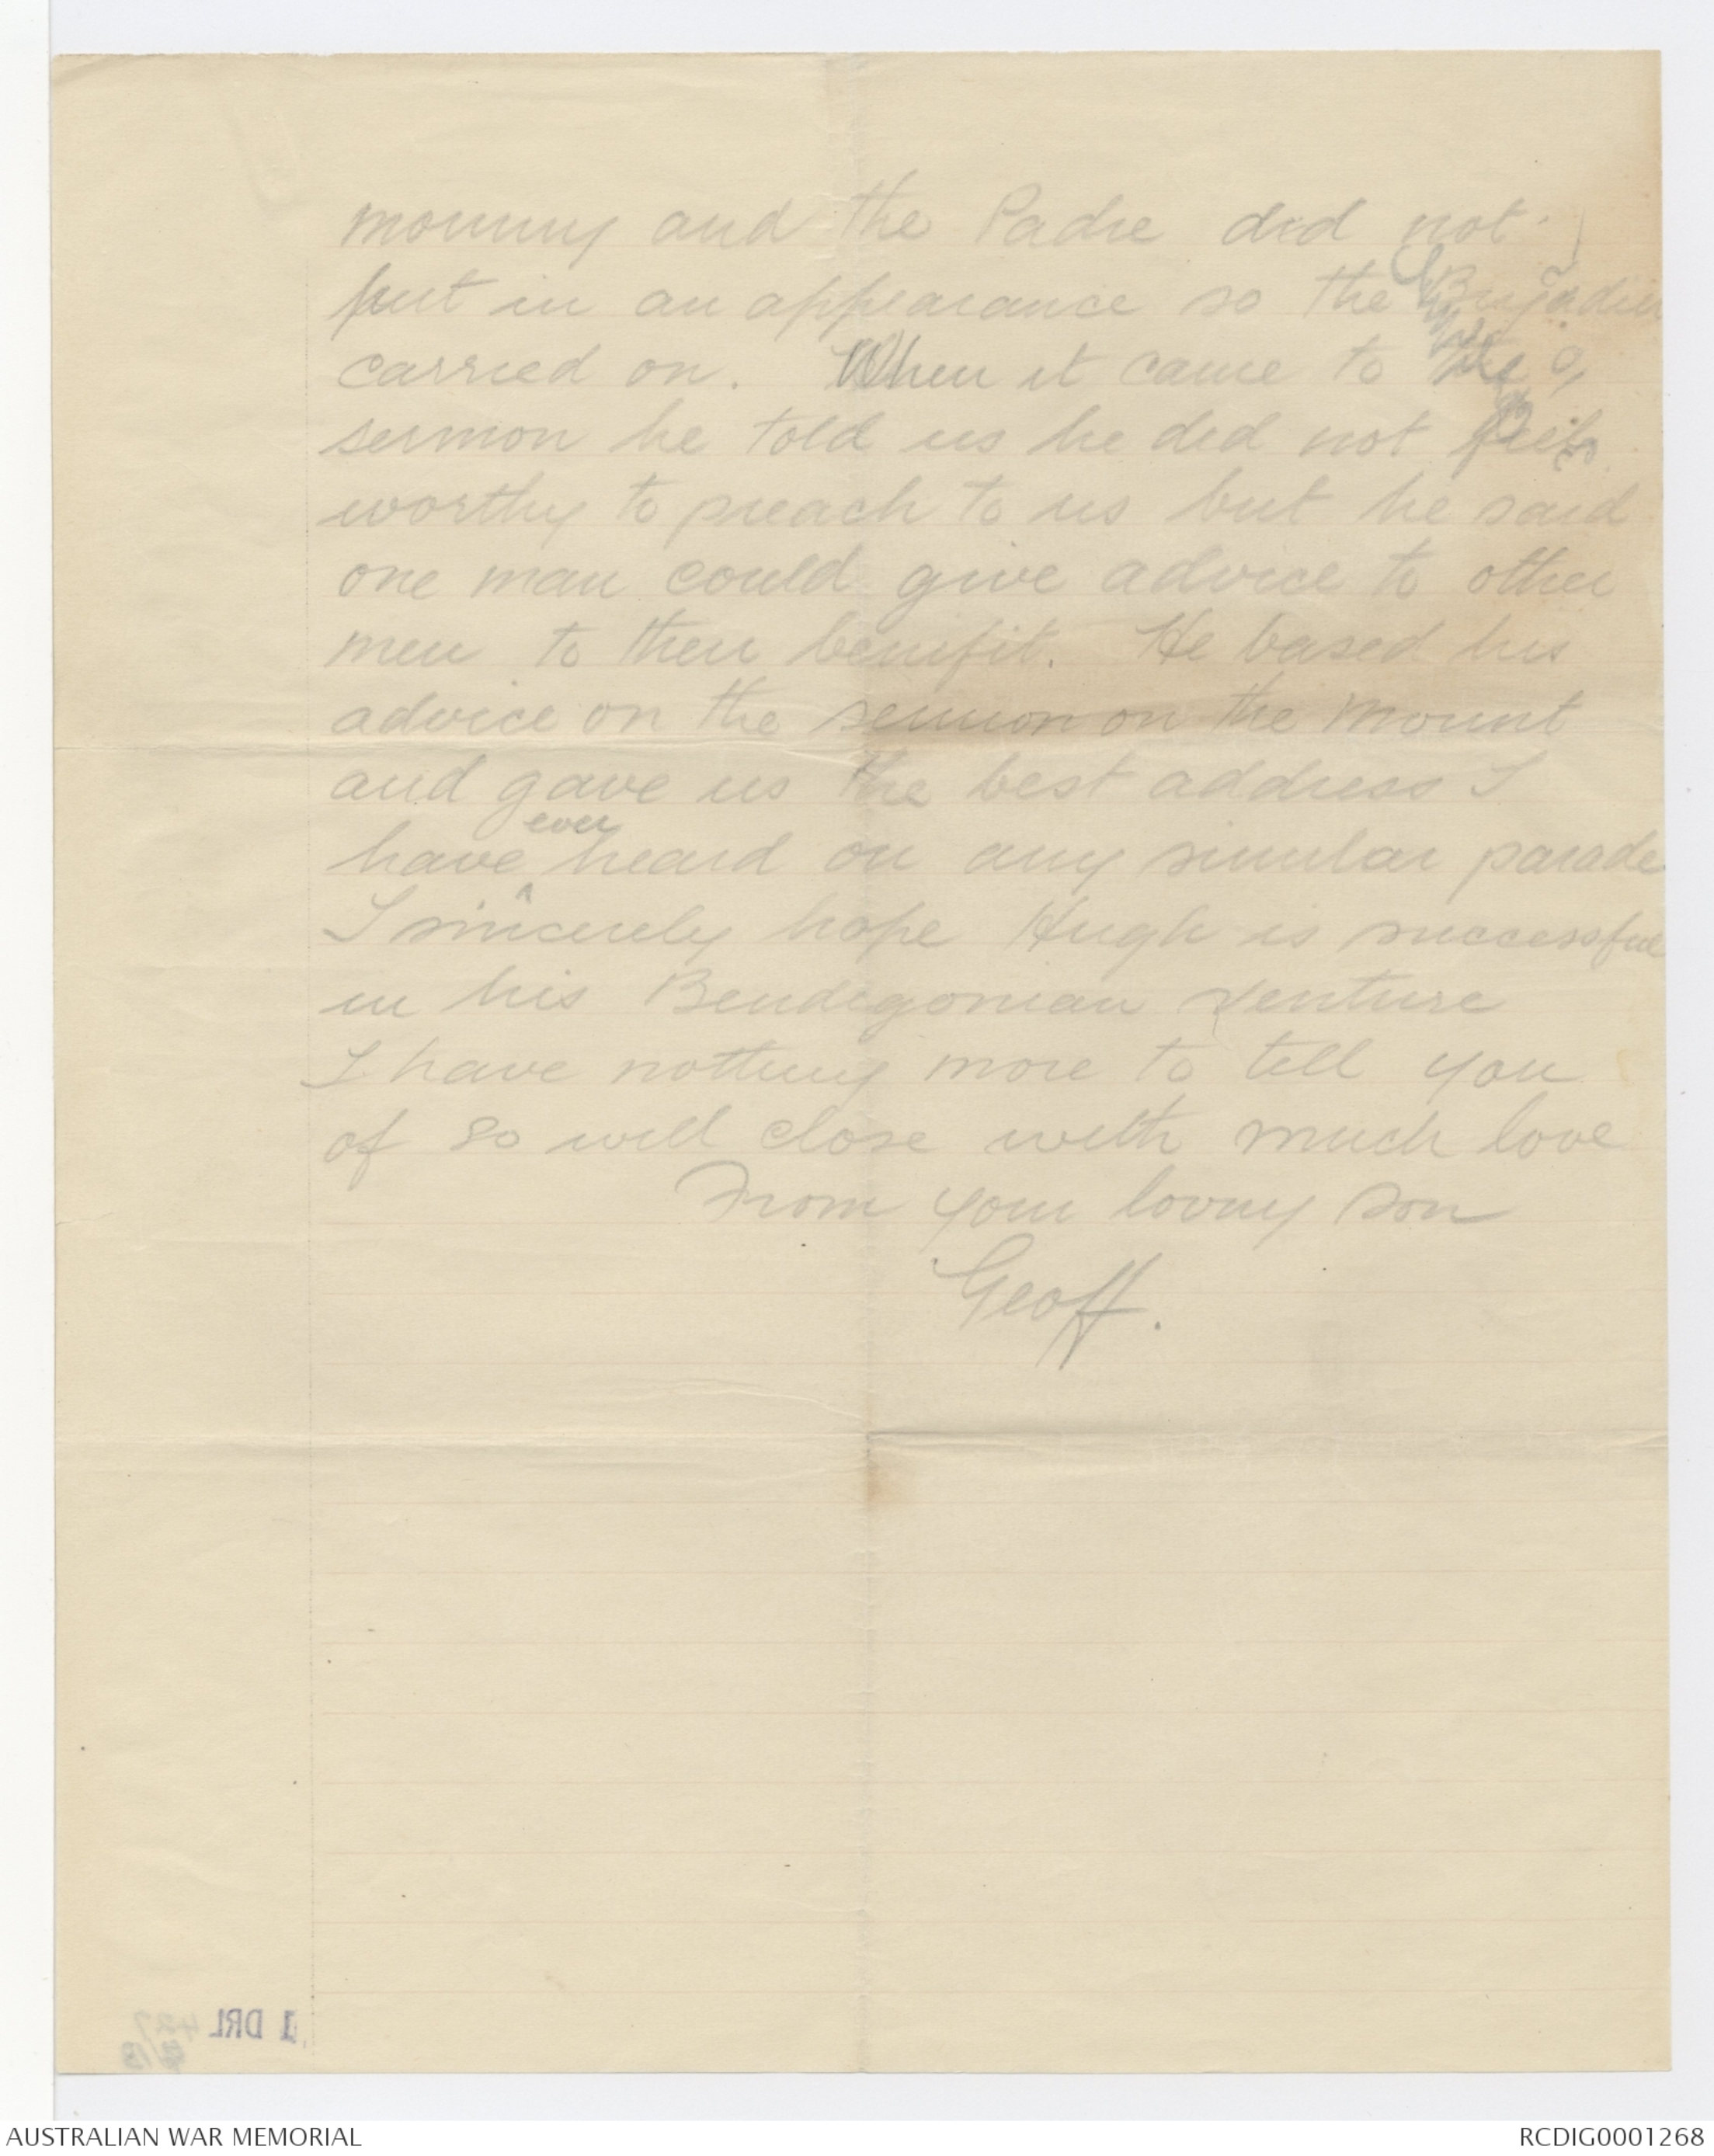 morning and the Padre did not
put in an appearance so the Brigadier
carried on. When it came to the
sermon he told us he did not feel
worthy to preach to us but he said
one man could give advice to other
men to their benifit. He based his
advice on the sermon on the mount
and gave us the best address I
have ever heard on any similar parade
I sincerely hope Hugh is successful
in his Bendigonian venture
I have nothing more to tell you
of so will close with much love
From your loving son
Geoff.
1 DRL 427
AUSTRALIAN WAR MEMORIAL
RCDIG0001268